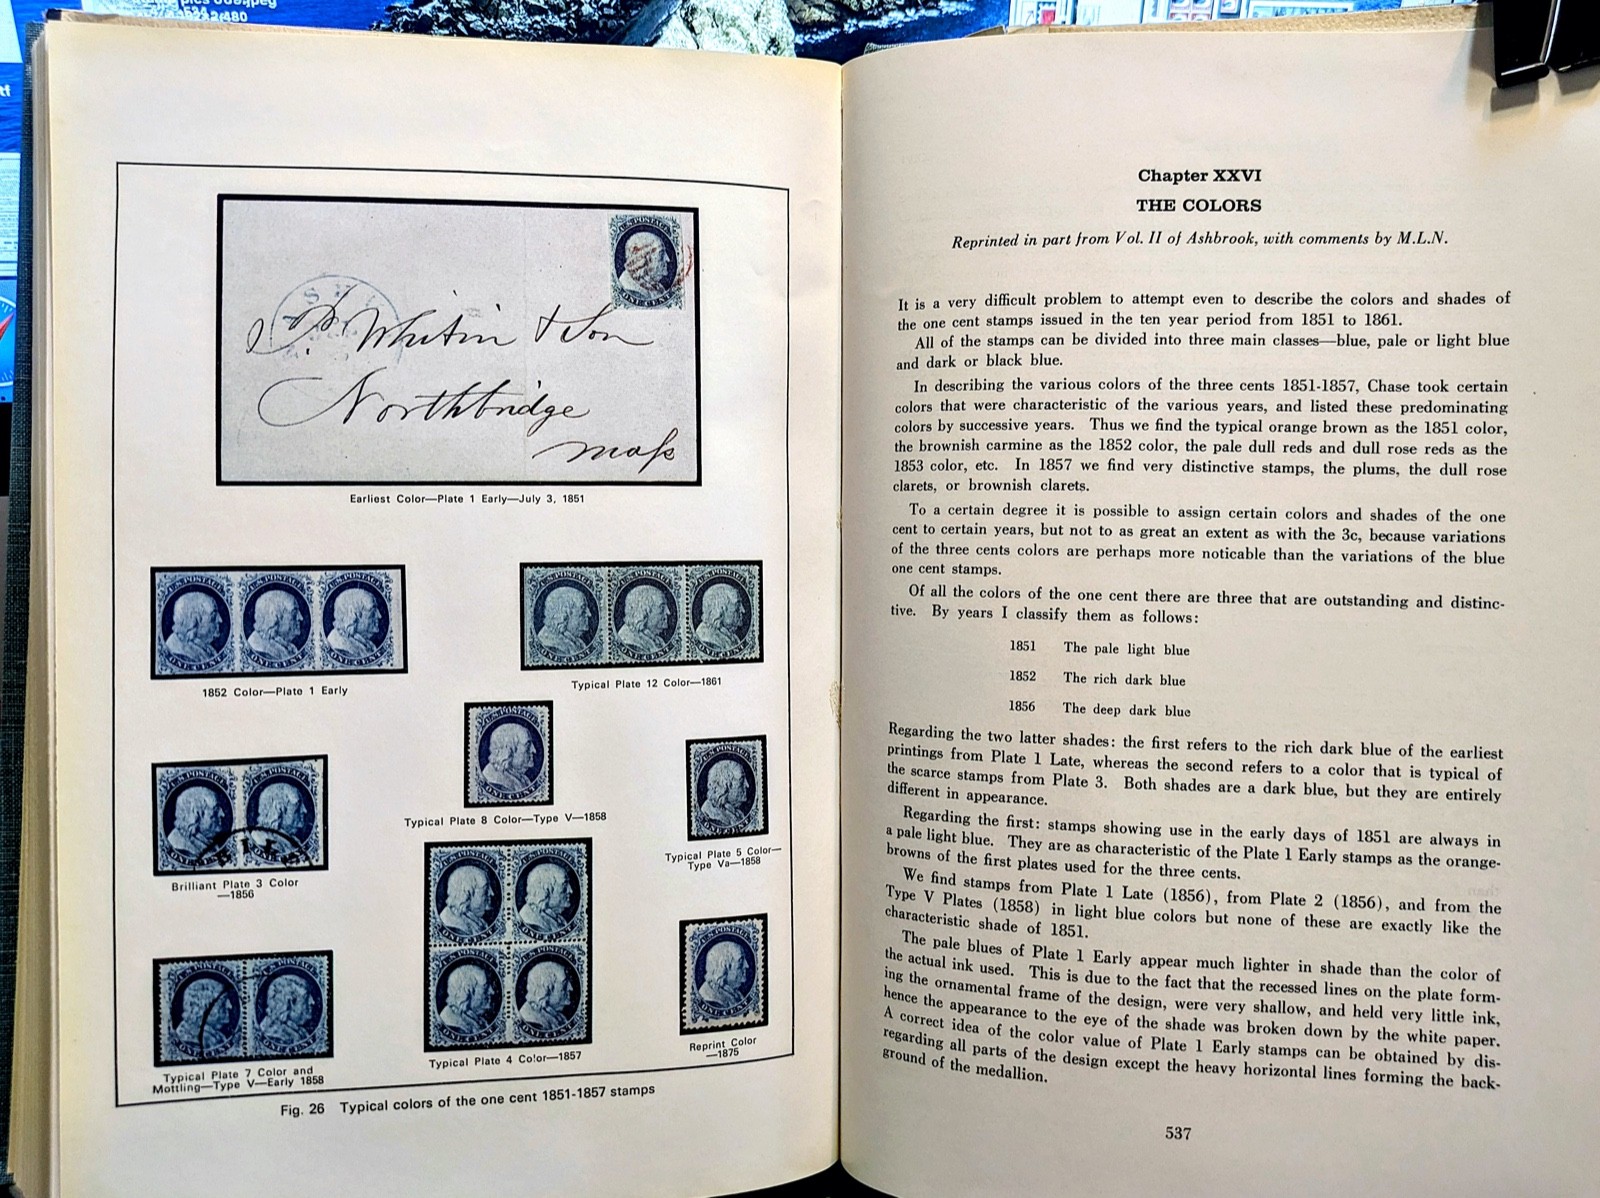 U.S. POSTAGE
ONE CENT
Whitin & Son
Northbridge
Mass
Earliest Color—Plate 1 Early—July 3, 1851
1852 Color—Plate 1 Early
Typical Plate 12 Color—1861
Typical Plate 8 Color—Type V—1858
Typical Plate 5 Color—
Type Va—1858
Brilliant Plate 3 Color
—1856
Typical Plate 7 Color and
Mottling—Type V—Early 1858
Typical Plate 4 Color—1857
Reprint Color
—1875
Fig. 26 Typical colors of the one cent 1851-1857 stamps
Chapter XXVI
THE COLORS
Reprinted in part from Vol. II of Ashbrook, with comments by M.L.N.
It is a very difficult problem to attempt even to describe the colors and shades of
the one cent stamps issued in the ten year period from 1851 to 1861.
All of the stamps can be divided into three main classes—blue, pale or light blue
and dark or black blue.
In describing the various colors of the three cents 1851-1857, Chase took certain
colors that were characteristic of the various years, and listed these predominating
colors by successive years. Thus we find the typical orange brown as the 1851 color,
the brownish carmine as the 1852 color, the pale dull reds and dull rose reds as the
1853 color, etc. In 1857 we find very distinctive stamps, the plums, the dull rose
clarets, or brownish clarets.
To a certain degree it is possible to assign certain colors and shades of the one
cent to certain years, but not to as great an extent as with the 3c, because variations
of the three cents colors are perhaps more noticable than the variations of the blue
one cent stamps.
Of all the colors of the one cent there are three that are outstanding and distinc-
tive. By years I classify them as follows:
1851 The pale light blue
1852 The rich dark blue
1856 The deep dark blue
Regarding the two latter shades: the first refers to the rich dark blue of the earliest
printings from Plate 1 Late, whereas the second refers to a color that is typical of
the scarce stamps from Plate 3. Both shades are a dark blue, but they are entirely
different in appearance.
Regarding the first: stamps showing use in the early days of 1851 are always in
a pale light blue. They are as characteristic of the Plate 1 Early stamps as the orange-
browns of the first plates used for the three cents.
We find stamps from Plate 1 Late (1856), from Plate 2 (1856), and from the
Type V Plates (1858) in light blue colors but none of these are exactly like the
characteristic shade of 1851.
The pale blues of Plate 1 Early appear much lighter in shade than the color of
the actual ink used. This is due to the fact that the recessed lines on the plate form-
ing the ornamental frame of the design, were very shallow, and held very little ink,
hence the appearance to the eye of the shade was broken down by the white paper.
A correct idea of the color value of Plate 1 Early stamps can be obtained by dis-
regarding all parts of the design except the heavy horizontal lines forming the back-
ground of the medallion.
537